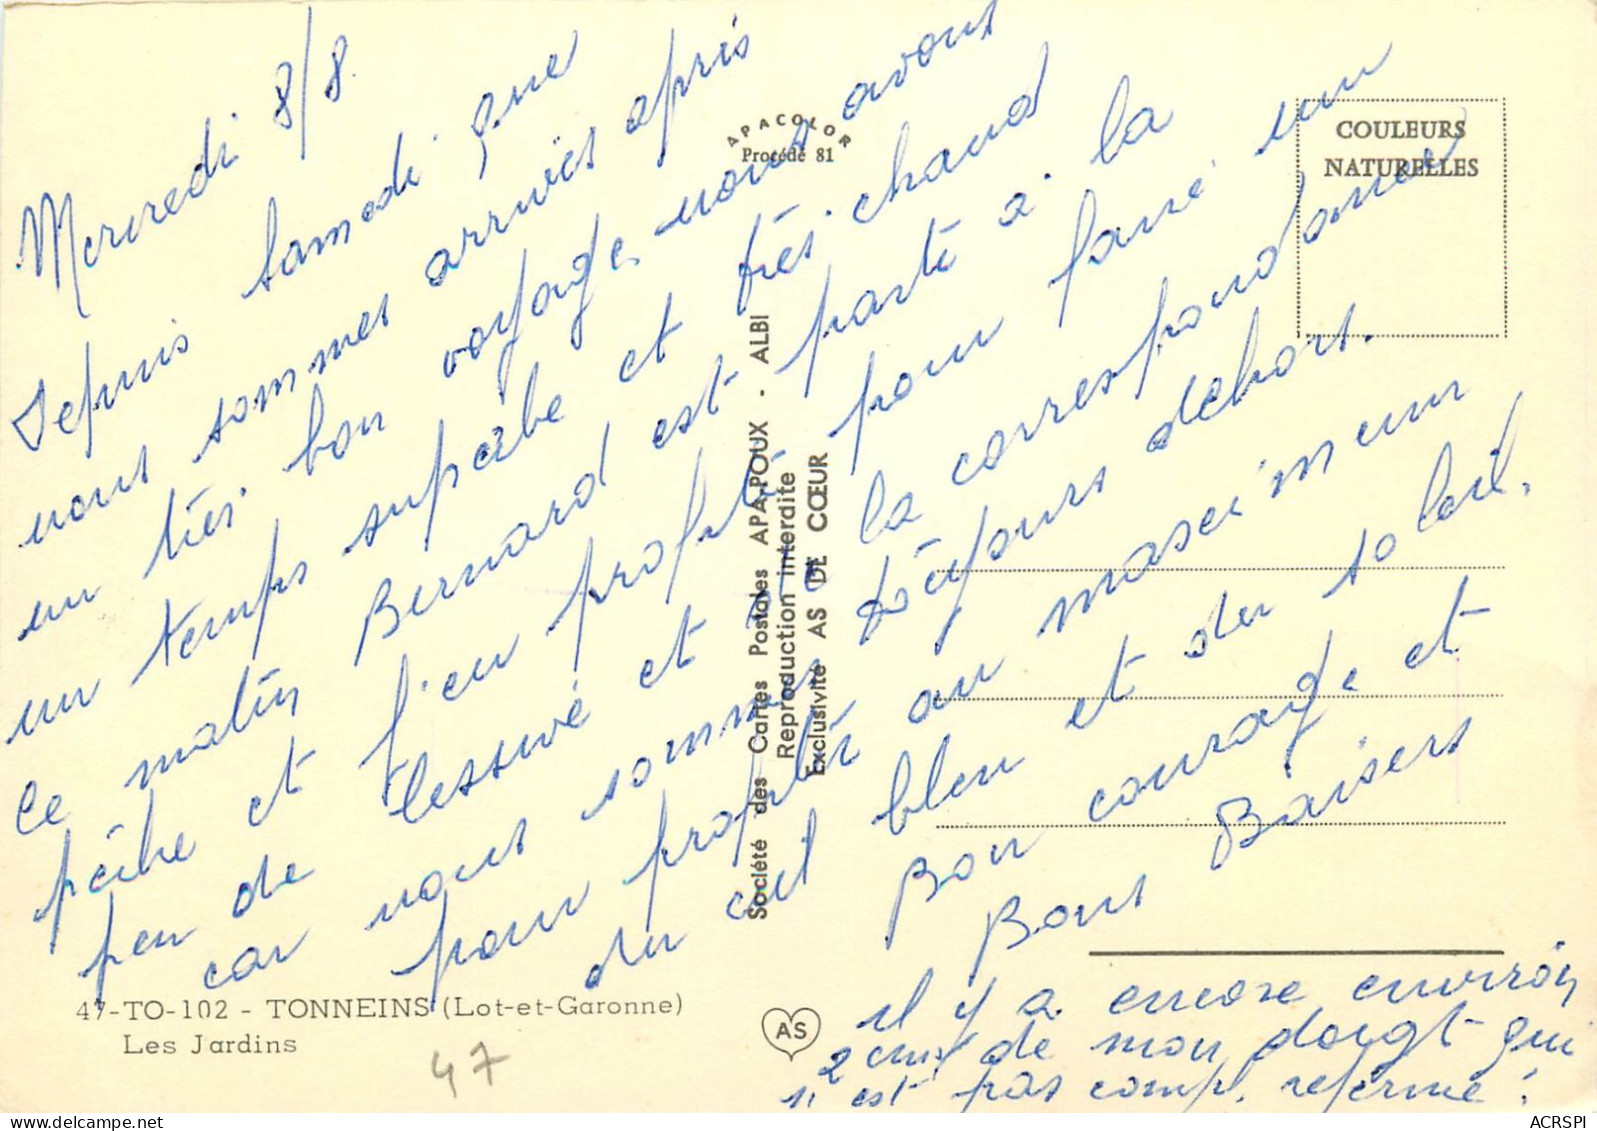 Mercredi 8/8.
Depuis samedi que
nous sommes arrivés après
un très bon voyage, nous avons
un temps superbe et très chaud
Ce matin Bernard est parti à la
pêche et j'en profite pour faire un
peu de lessive et de la correspondance
car nous sommes toujours dehors.
pour profiter au maximum
du ciel bleu et du soleil.
Bon courage et
Bons Baisers
il y a encore environ
2 cm de mon doigt qui
n'est pas comp. refermé !
APACOLOR
Procédé 81
COULEURS
NATURELLES
Société des Cartes Postales APA-POUX - ALBI
Reproduction interdite
Exclusivité AS DE CŒUR
47-TO-102 - TONNEINS (Lot-et-Garonne)
Les Jardins
47
AS
ACRSPI